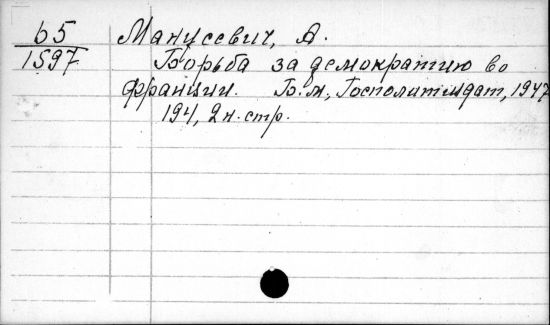 65
1597
Манусевич, А.
Борьба за демократию во
франции. Б.м., Госполитиздат, 1947
194, 2 н. стр.